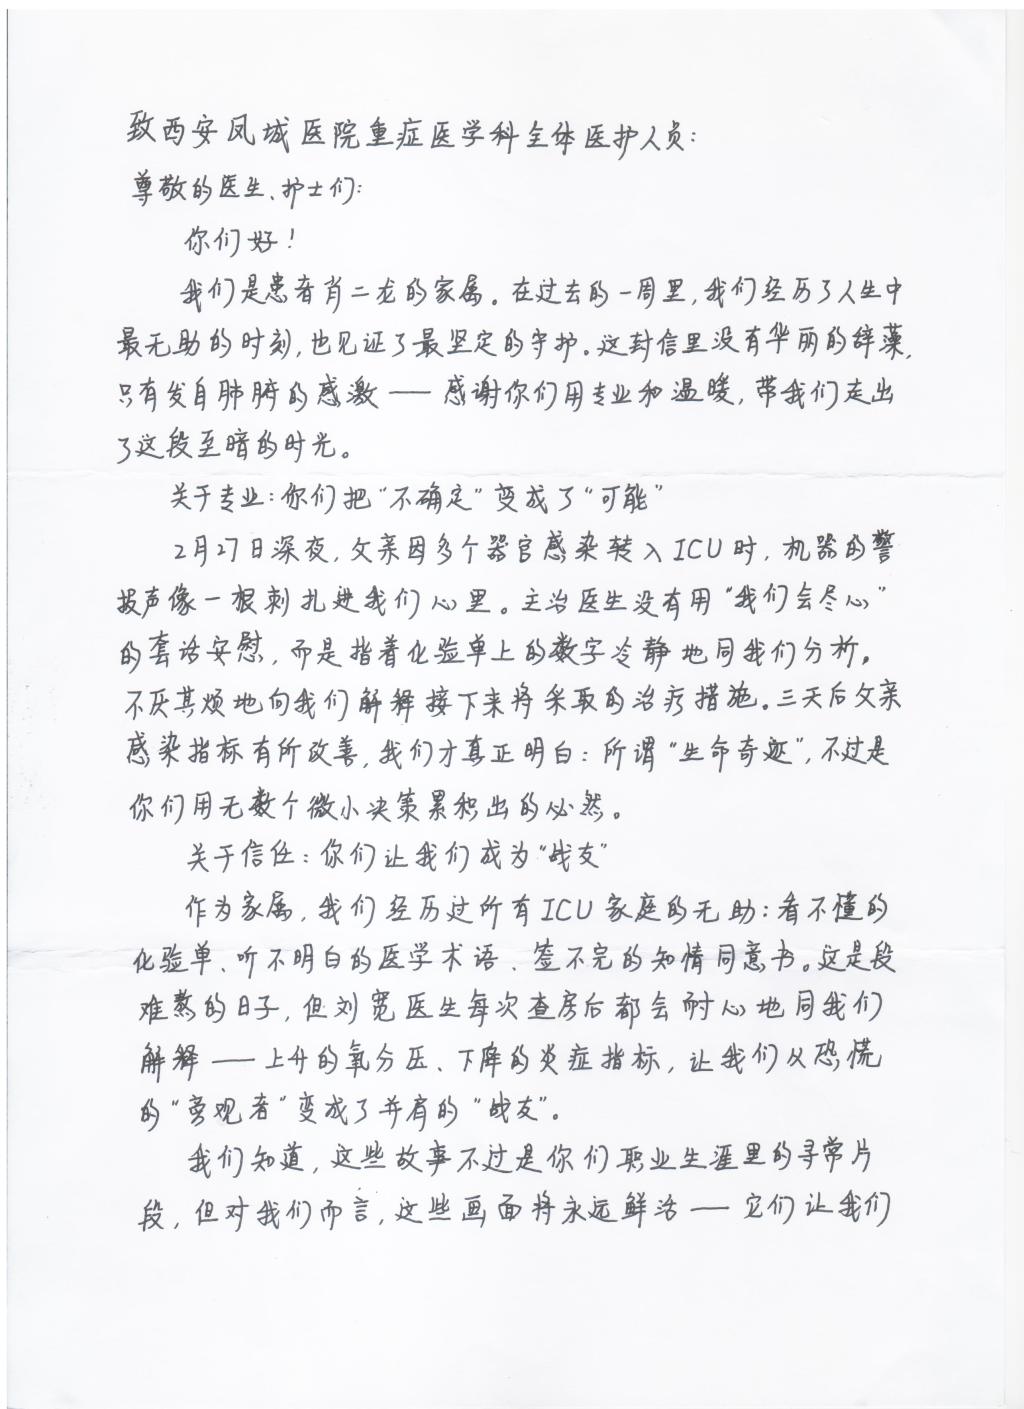 致西安凤城医院重症医学科全体医护人员:
尊敬的医生、护士们:
你们好!
我们是患者肖二龙的家属。在过去的一周里,我们经历了人生中
最无助的时刻,也见证了最坚定的守护。这封信里没有华丽的辞藻,
只有发自肺腑的感激——感谢你们用专业和温暖,带我们走出
了这段至暗的时光。
关于专业:你们把“不确定”变成了“可能”
2月27日深夜,父亲因多个器官感染转入ICU时,机器的警
报声像一根刺扎进我们心里。主治医生没有用“我们会尽心”
的套话安慰,而是指着化验单上的数字冷静地同我们分析。
不厌其烦地向我们解释接下来将采取的治疗措施。三天后父亲
感染指标有所改善,我们才真正明白:所谓“生命奇迹”,不过是
你们用无数个微小决策累积出的必然。
关于信任:你们让我们成为“战友”
作为家属,我们经历过所有ICU家庭的无助:看不懂的
化验单、听不明白的医学术语、签不完的知情同意书。这是段
难熬的日子,但刘宽医生每次查房后都会耐心地同我们
解释——上升的氧分压、下降的炎症指标,让我们从恐慌
的“旁观者”变成了并肩的“战友”。
我们知道,这些故事不过是你们职业生涯里的寻常片
段,但对我们而言,这些画面将永远鲜活——它们让我们